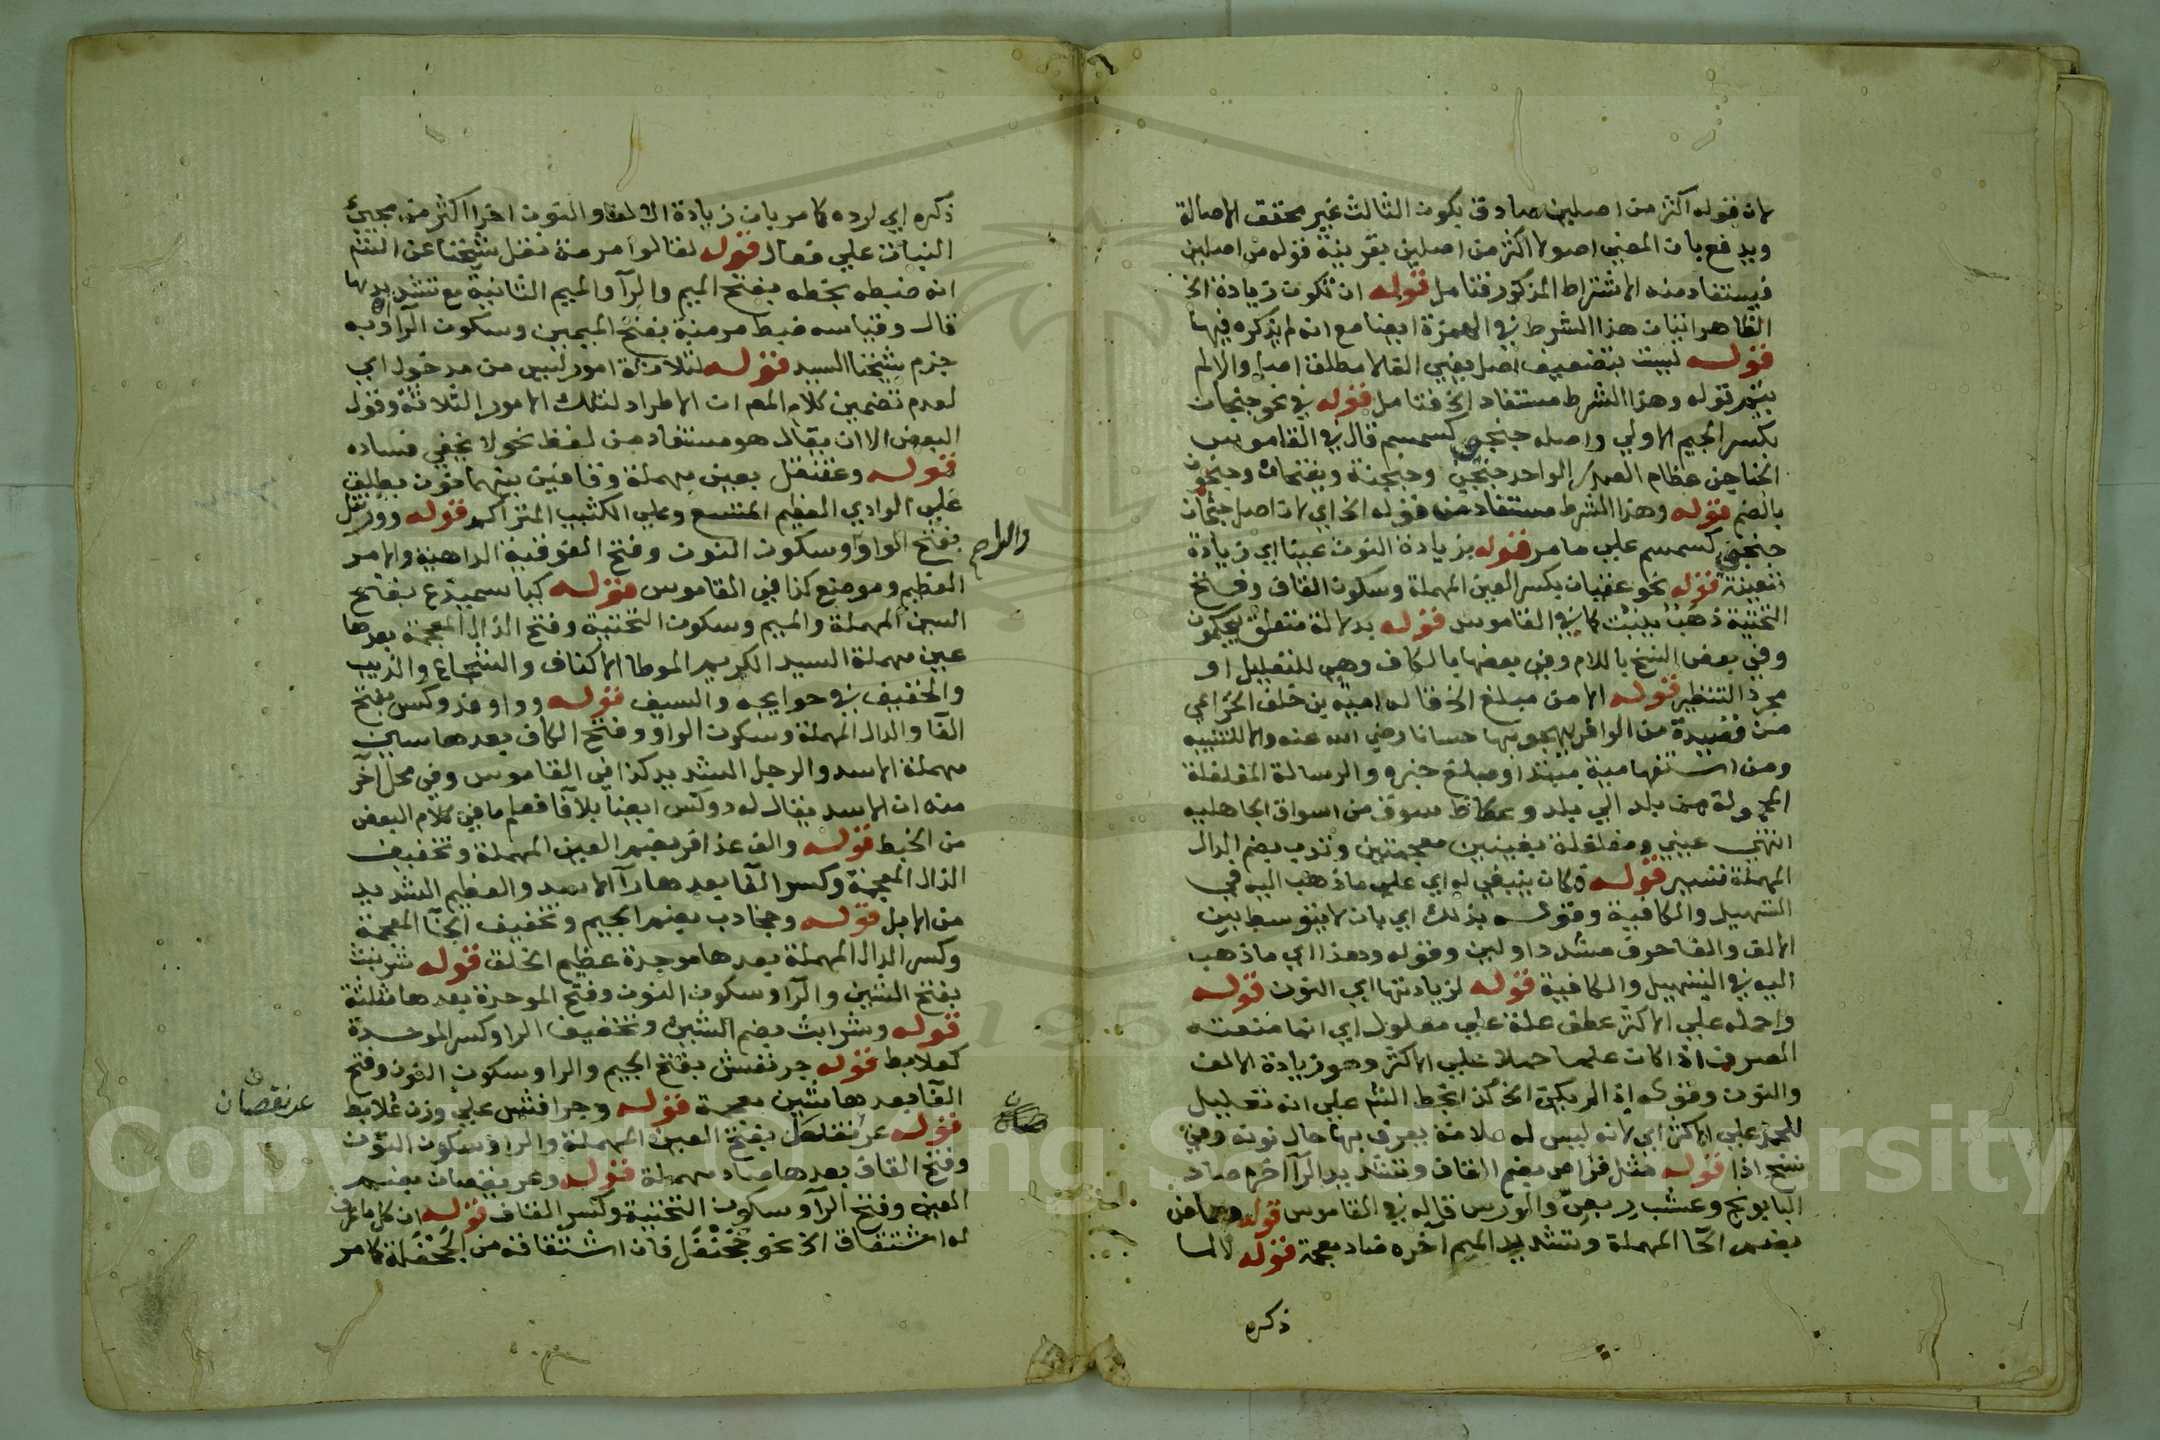 لان قوله اكثر من اصلين صادق بكون الثالث غير محقق الاصالة
ويدفع بان المعني اصولا اكثر من اصلين بقرينة قوله من اصلين
فيستفاد منه الاشتراط المذكور فتامل قوله ان تكون زيادة الخ
الظاهر اثبات هذا الشرط في الهمزة ايضا مع انه لم يذكره فيها
قوله ليست بتضعيف اصل يعني القلا مطلقا والا لم
يتم قوله وهذا الشرط مستفاد الخ فتامل قوله في نحو جنجان
بكسر الجيم الاولي واصله جنجن كسمسم قال في القاموس
الجناجن عظام الصدر الواحد جنجن وجنجنة ويفتحان وجنجون
بالضم قوله وهذا الشرط مستفاد من قوله الخ اي لان اصل جنجان
جنجن كسمسم علي ما مر قوله بزيادة النون عينا اي زيادة
متعينة قوله نحو عقيان بكسر العين المهملة وسكون القاف وفتح
التحتية ذهب ينبت كما في القاموس قوله بدلالة متعلق بيكون
وفي بعض النسخ باللام وفي بعضها بالكاف وهي للتعليل او
مجرد التنظير قوله الا من مبلغ الخ قاله امية بن خلف الخزاعي
من قصيدة من الوافر يهجو بها حسانا رضي الله عنه والا للتنبيه
ومن استفهامية مبتدا ومبلغ خبره والرسالة المغلغلة
المحمولة من بلد الي بلد وعكاظ سوق من اسواق الجاهلية
انتهي عيني ومغلغلة بغينين معجمتين وتدب بضم الدال
المهملة تسير قوله وكان ينبغي له اي علي ما ذهب اليه في
التسهيل والكافية وقوله بذلك اي بان لا يتوسط بين
الالف والفا حرف مشدد اولين وقوله وهذا اي ما ذهب
اليه في التسهيل والكافية قوله لزيادتها اي النون قوله
واحمله علي الاكثر عطف علة علي معلول اي انما منعته
الصرف اذا كان علما حملا علي الاكثر وهو زيادة الالف
والنون وقوله اذ لم يكن الخ كذا بخط الشم علي انه تعليل
للحمل علي الاكثر اي لانه ليس له علامة يعرف بها حال نونه وفي
نسخ اذا قوله مثل قراص بضم القاف وتشديد الرآ اخره صاد
البابونج وعشب ربعي والورس قاله في القاموس قوله وحماض
بضم الحا المهملة وتشديد الميم اخره ضاد معجمة قوله لا لما
ذكره
ذكره اي لرده كما مر بان زيادة الالف والنون اخرا اكثر من مجيئ
النبات علي فعال قوله لقالوا مرمنة نقل شيخنا عن الشم
انه ضبطه بخطه بفتح الميم والرآ والميم الثانية مع تشديدها
قال وقياسه ضبط مرمنة بفتح الميمين وسكون الرآ وبه
جزم شيخنا السيد قوله لثلاثة امور ليس من مدخول اي
لعدم تضمين كلام المص ان الاطراد لتلك الامور الثلاثة وقول
البعض الا ان يقال هو مستفاد من لفظ نحو لا يخفي فساده
قوله وعقنقل بعين مهملة وقافين بينهما نون يطلق
علي الوادي العظيم المتسع وعلي الكثيب المتراكم قوله وورنتل
بفتح الواو وسكون النون وفتح الفوقية الداهية والامر
والراح
العظيم وموضع كذا في القاموس قوله كيا سميذع بفتح
السين المهملة والميم وسكون التحتية وفتح الذال المعجمة بعدها
عين مهملة السيد الكريم الموطا الاكناف والشجاع والذيب
والخفيف في حوايجه والسيف قوله وواو فدوكس بفتح
الفا والدال المهملة وسكون الواو وفتح الكاف بعدها سين
مهملة الاسد والرجل الشديد كذا في القاموس وفي محل آخر
منه ان الاسد يقال له دوكس ايضا بلا فا فعلم ما في كلام البعض
من الخبط قوله والف عذافر بضم العين المهملة وتخفيف
الذال المعجمة وكسر الفا بعدها رآ الاسد والعظيم الشديد
من الابل قوله وجخادب بضم الجيم وتخفيف الخآ المعجمة
وكسر الدال المهملة بعدها موحدة عظيم الخلق قوله شرنبث
بفتح الشين والرآ وسكون النون وفتح الموحدة بعدها مثلثة
قوله وشرابث بضم الشين وتخفيف الرا وكسر الموحدة
كعلابط قوله جرنفش بفتح الجيم والرا وسكون النون وفتح
الفا بعدها شين معجمة قوله وجرافش علي وزن علابط
قوله عرنقص بفتح العين المهملة والرا وسكون النون
صان
عرنقصان
وفتح القاف بعدها صاد مهملة قوله وعريقصان بضم
العين وفتح الرآ وسكون التحتية وكسر القاف قوله ان كل ما عرف
له اشتقاق الخ نحو جحنفل فان اشتقاقه من الجحفلة كما مر